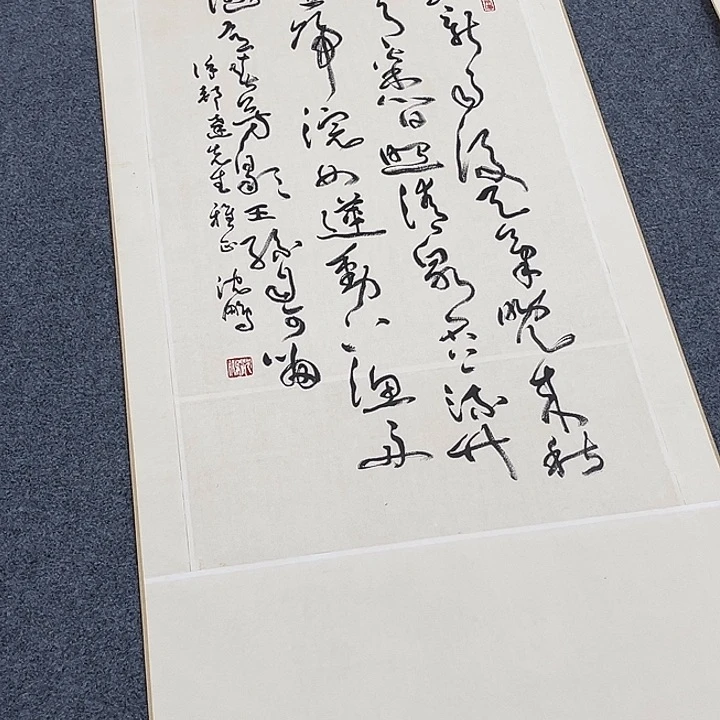 新雨後天氣晚來秋
月松間照清泉石上流竹
歸浣女蓮動下漁舟
意春芳歇王孫自可留
徐邦達先生雅正 沈鵬